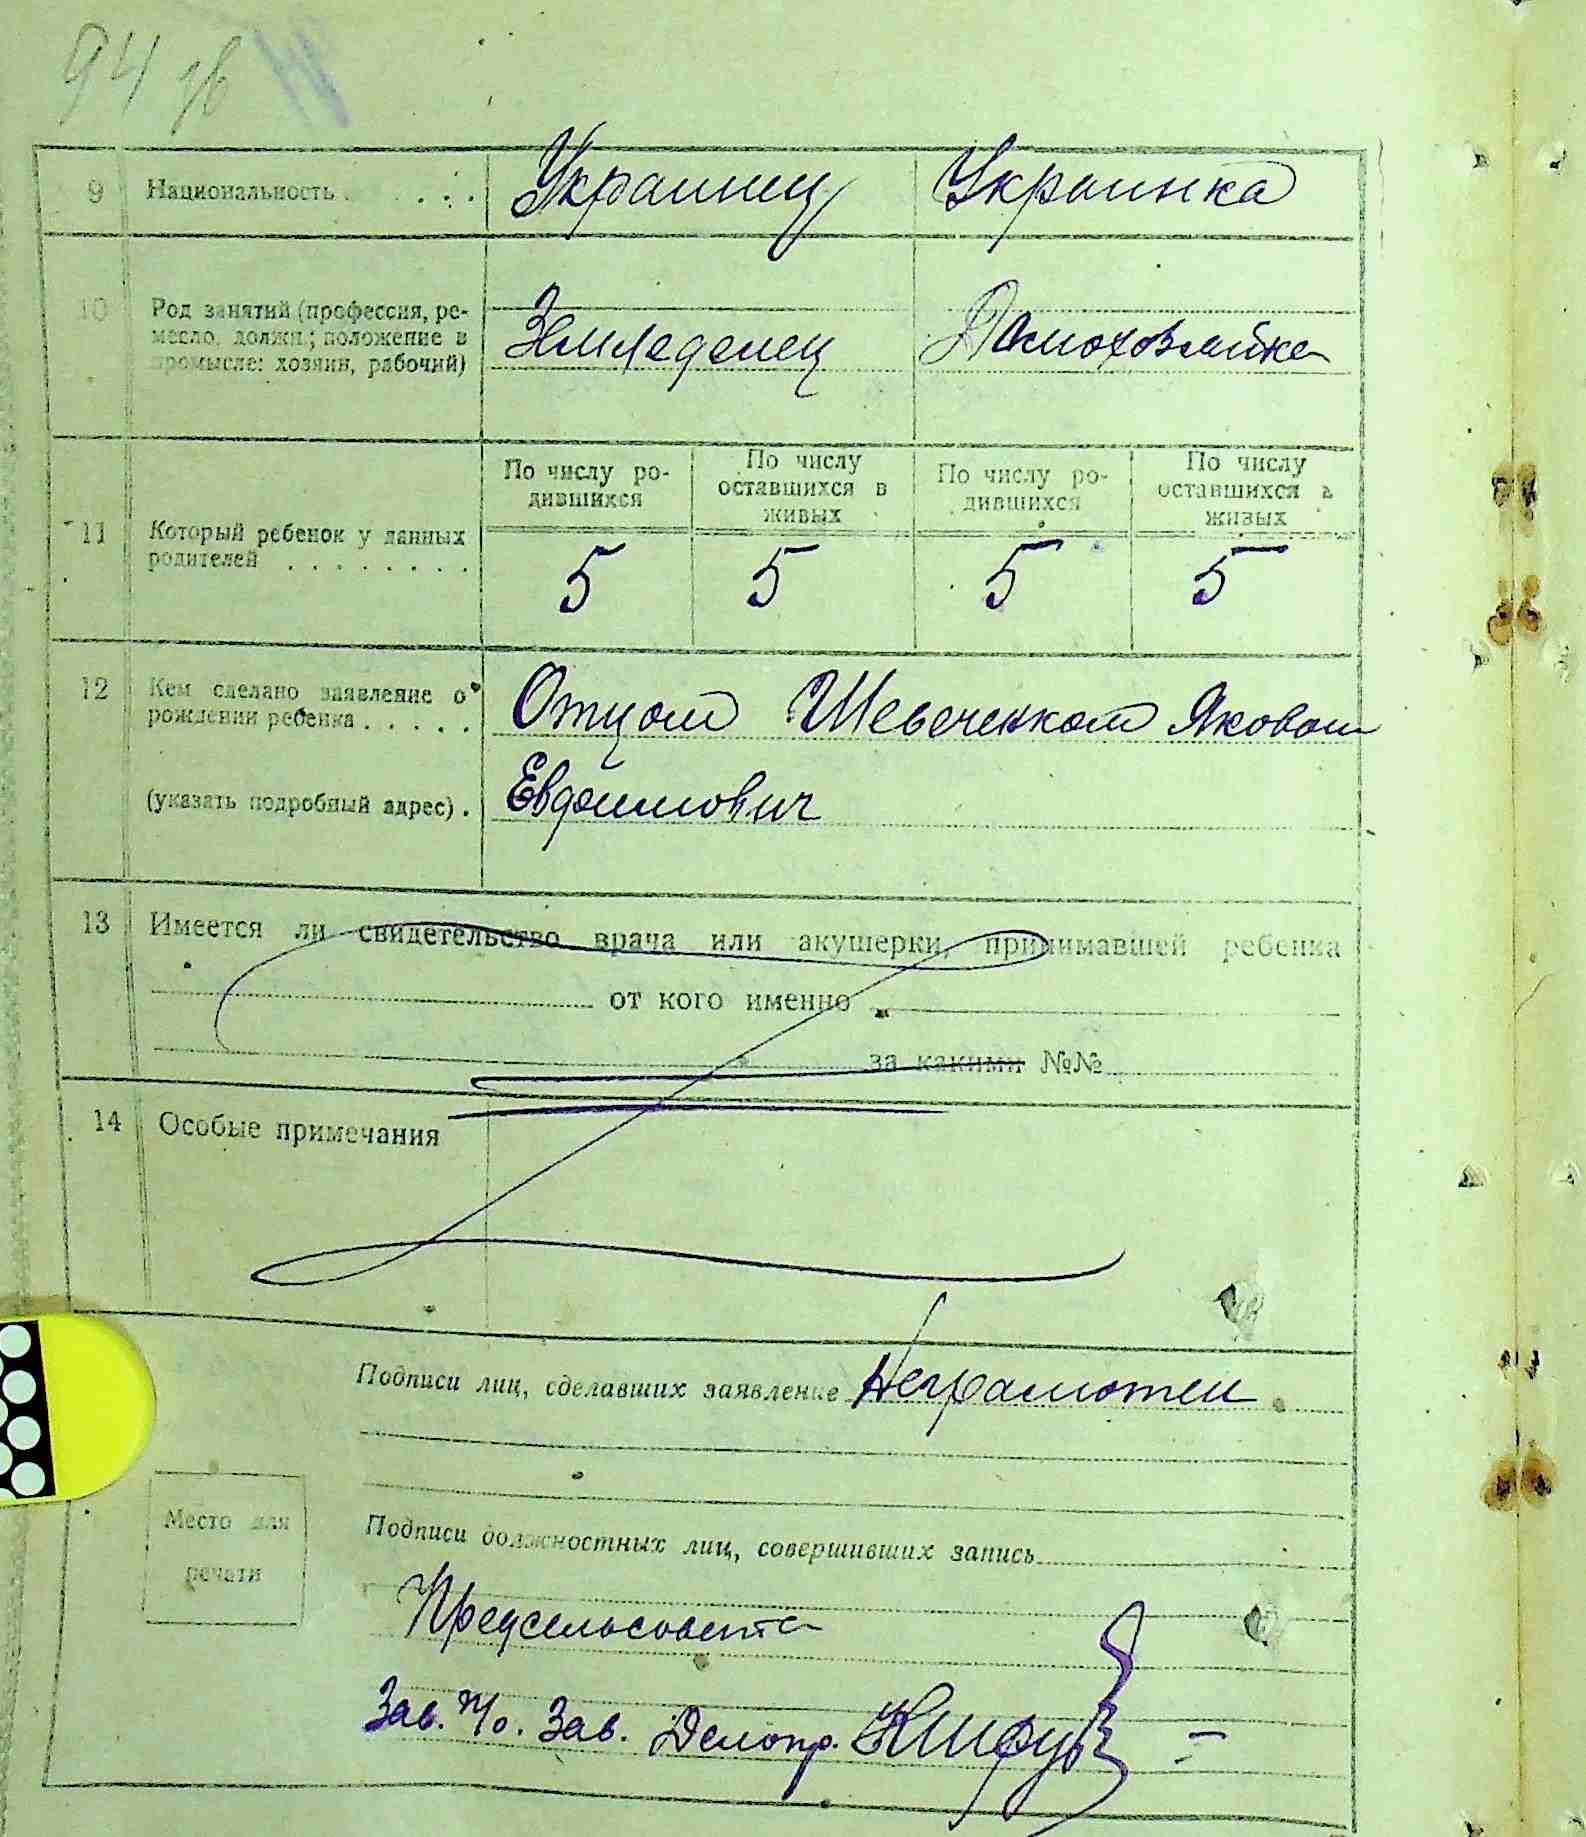 94 об
9 Национальность . . . . . Украинец Украинка
10 Род занятий (профессия, ре-
месло, должн.; положение в
промысле: хозяин, рабочий)
Земледелец Домохозяйка
11 Который ребенок у данных
родителей . . . . . . . .
По числу ро-
дившихся
По числу
оставшихся в
живых
По числу ро-
дившихся
По числу
оставшихся в
живых
5 5 5 5
12 Кем сделано заявление о
рождении ребенка . . . . .
(указать подробный адрес) .
Отцом Шевеченком Яковом
Евдоимович
13 Имеется ли свидетельство врача или акушерки, принимавшей ребенка
от кого именно
за какими №№
14 Особые примечания
Подписи лиц, сделавших заявление Неграмотен
Место для
печати
Подписи должностных лиц, совершивших запись
Предсельсовета
Зав. Зав. Делопр.